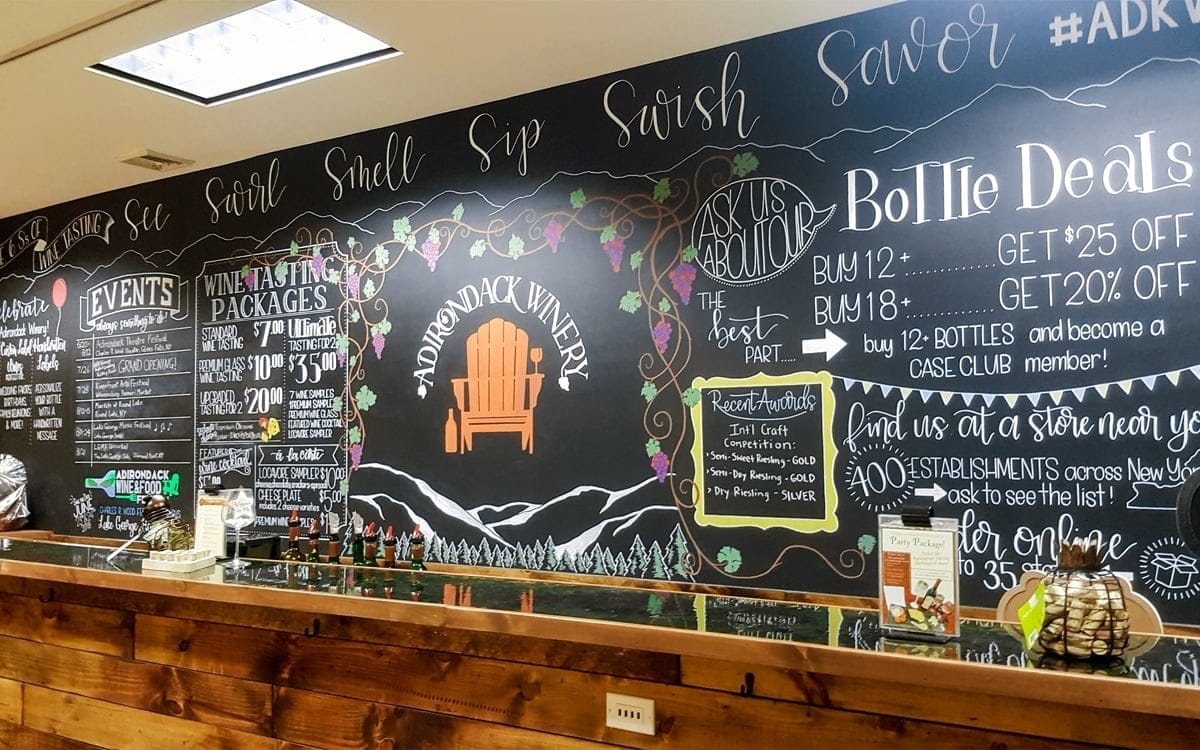 6 S's OF
WINE TASTING
See Swirl Smell Sip Swish Savor
#ADK
Celebrate
Adirondack Winery!
Custom Label
PERSONALIZE
YOUR
BOTTLE
WITH A
HANDWRITTEN
MESSAGE
& MORE!
EVENTS
always something to do!
Adirondack Theatre Festival
GRAND OPENING!
ADIRONDACK
WINE & FOOD
Lake George
WINE TASTING
PACKAGES
STANDARD
WINE TASTING
$7.00
PREMIUM GLASS
WINE TASTING
$10.00
UPGRADED
TASTING FOR 2
$20.00
ULTIMATE
TASTING FOR 2
$35.00
7 WINE SAMPLES
PREMIUM SAMPLE
PREMIUM WINE GLASS
FEATURED WINE COCKTAIL
LOCAVORE SAMPLER
FEATURED
wine cocktail
à la carte
LOCAVORE SAMPLER $10.00
CHEESE PLATE $5.00
includes 2 cheese varieties
PREMIUM WINE GLASS
ADIRONDACK WINERY
ASK US
ABOUT OUR
THE
best
PART.....
BOTTLE DEALS
BUY 12+ ............ GET $25 OFF
BUY 18+ ............ GET 20% OFF
buy 12+ BOTTLES and become a
CASE CLUB member!
Recent Awards
Int'l Craft
Competition:
Semi-Sweet Riesling - GOLD
Semi-Dry Riesling - GOLD
Dry Riesling - SILVER
find us at a store near yo
400 ESTABLISHMENTS across New Yo
ask to see the list!
der online
to 35 sta
Party Package!